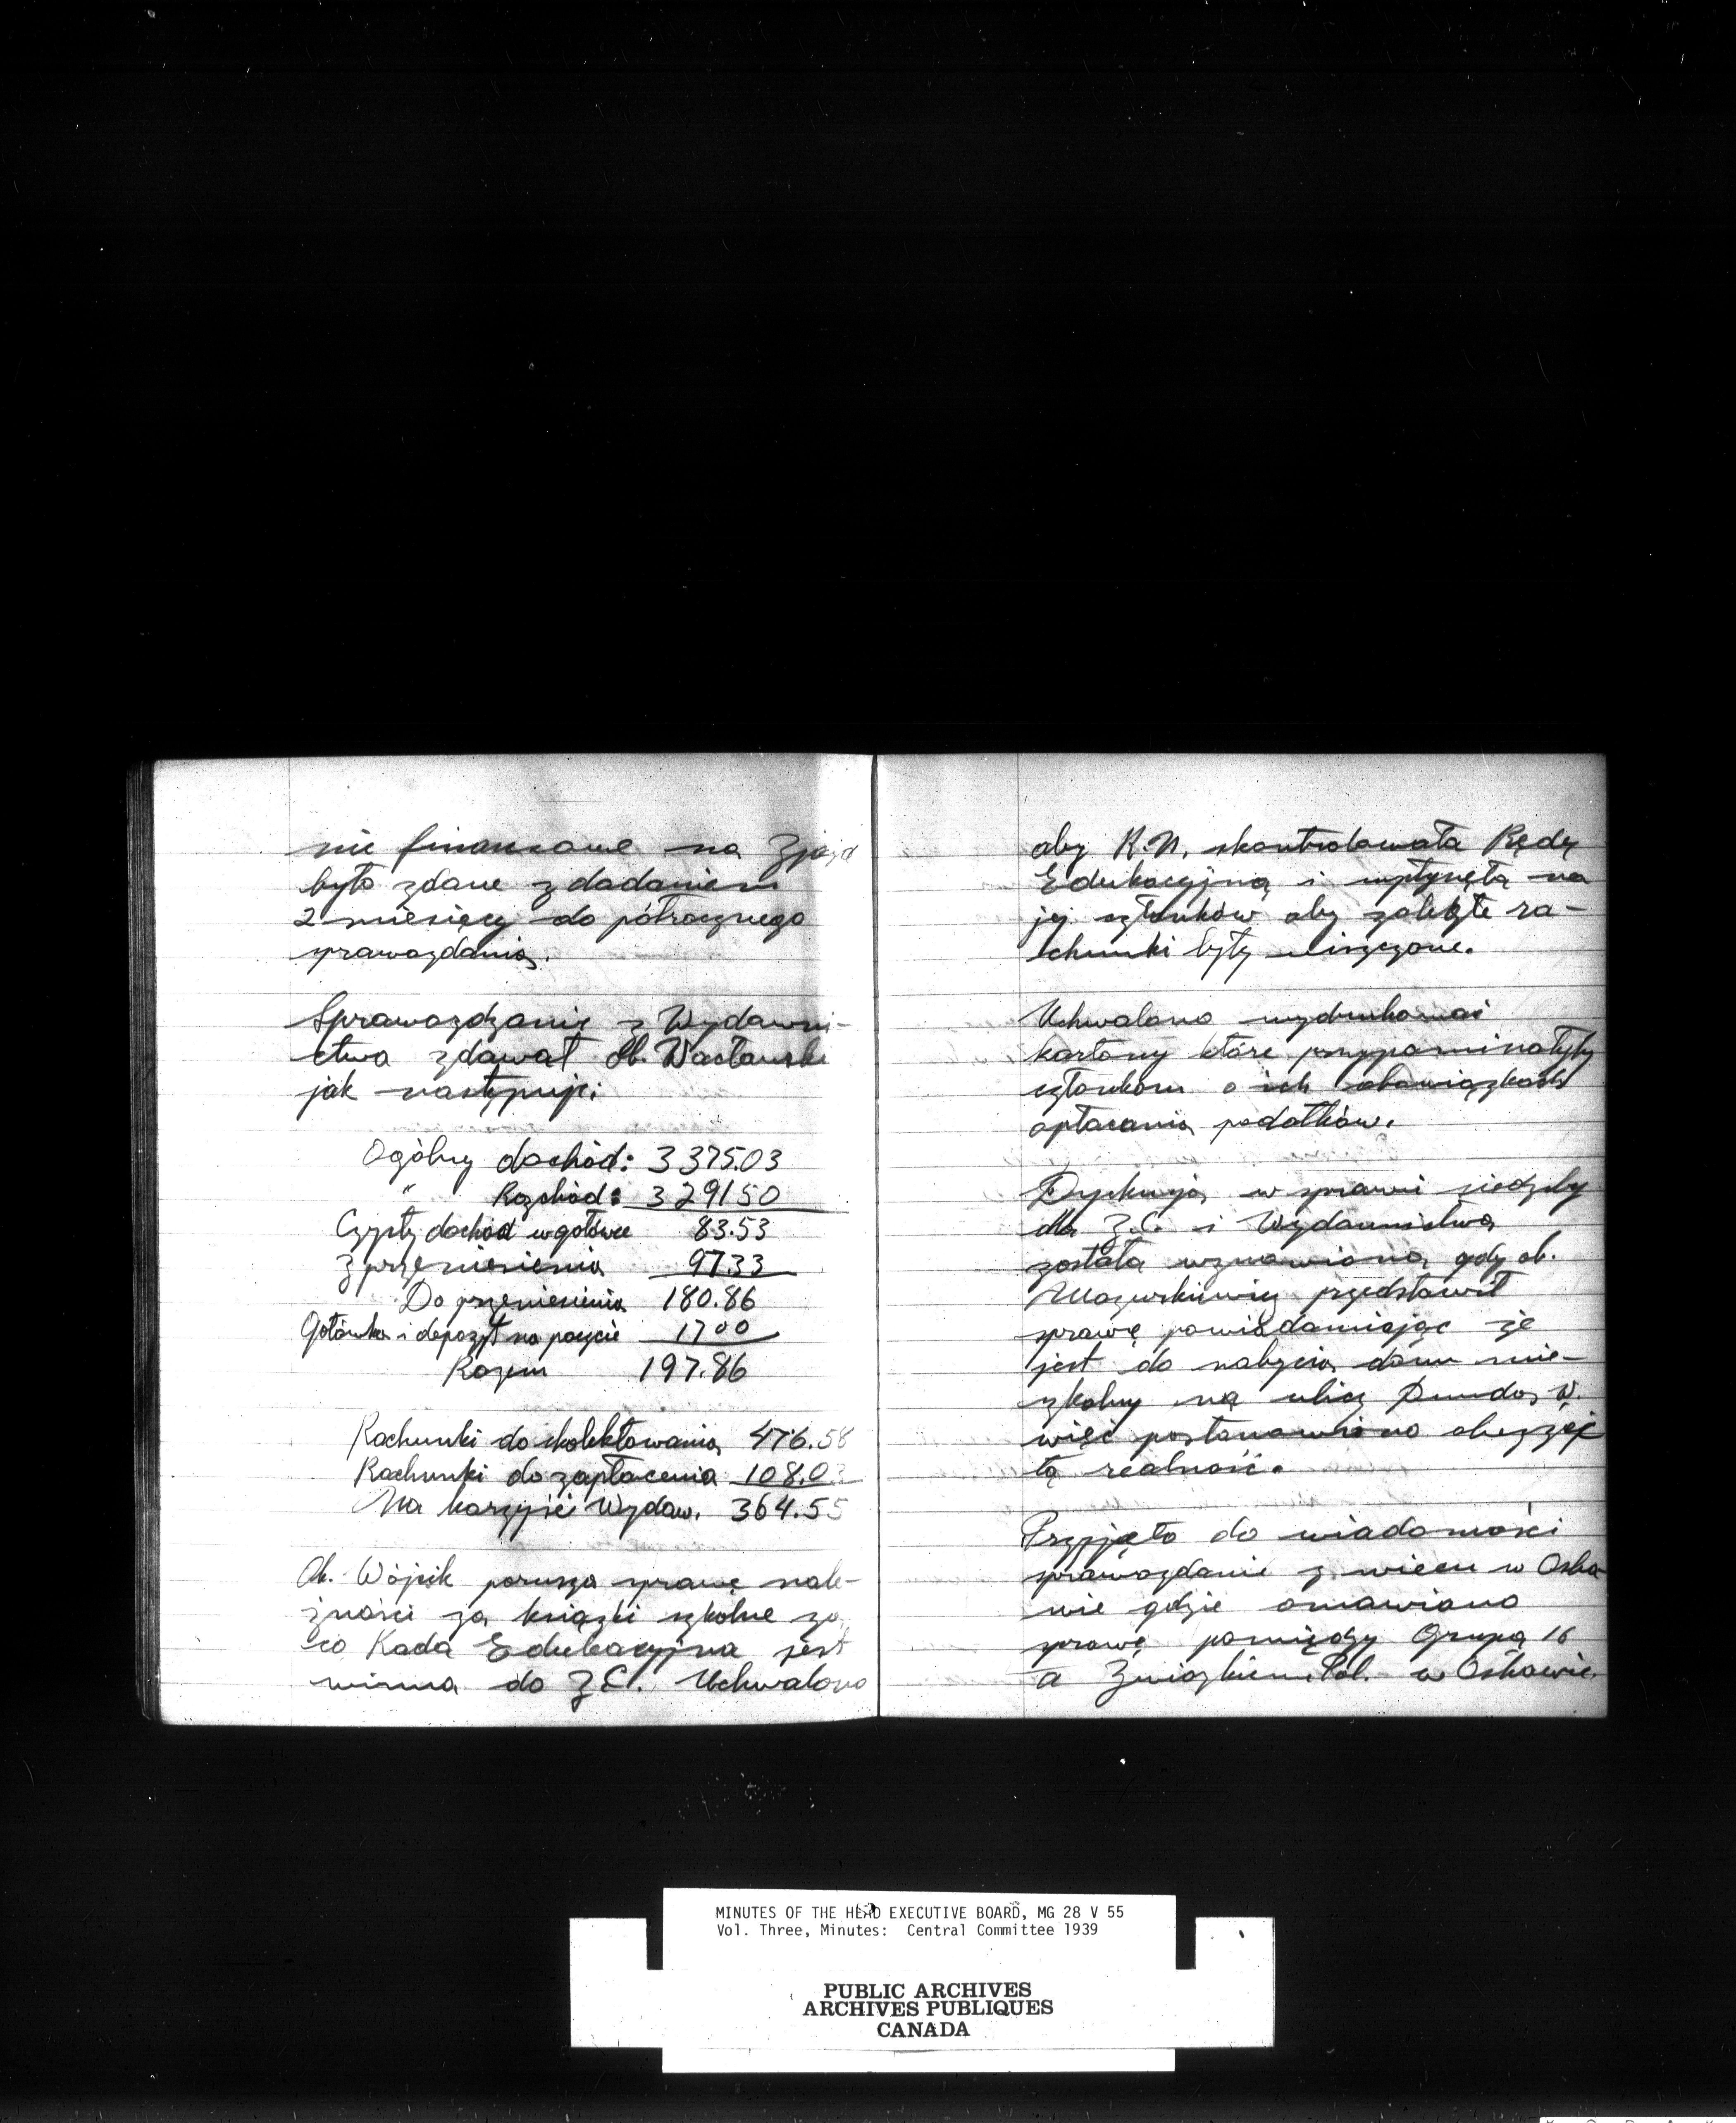 nie finansowe na Zjazd
było zdane z dodaniem
2 miesięcy do półrocznego
sprawozdania.
Sprawozdzanie z Wydawni-
ctwa zdawał Ob. Wacławski
jak następuje:
Ogólny dochód: 3375.03
" Rozchód: 329150
Czysty dochód w gotówce 83.53
Z przeniesienia 9733
Do przeniesienia 180.86
Gotówka i depozyt na poczcie 1700
Razem 197.86
Rachunki do skolektowania 476.58
Rachunki do zapłacenia 108.03
Na korzyść Wydaw. 364.55
Ob. Wójcik porusza sprawę nale-
żności za książki szkolne za
co Rada Edukacyjna jest
winna do Z.C. Uchwalono
aby R.N. skontrolowała Redę
Edukacyjną i wpłynęła na
jej członków aby zaległe ra-
chunki były uliszczone.
Uchwalono wydrukować
kartony które przypominałyby
członkom o ich obowiązkach
opłacania podatków.
Dyskusja w sprawie siedziby
dla Z.C. i Wydawnictwa
została wznowiona gdy ob.
Mazurkiewicz przedstawił
sprawę powiadamiając że
jest do nabycia dom mie-
szkalny na ulicy Dundas W.
więc postanowiono obejrzeć
tą realność.
Przyjęto do wiadomości
sprawozdanie z wiecu w Osha-
wie gdzie omawiano
sprawę pomiędzy Grupą 16
a Związkiem Pol. w Oshawie.
MINUTES OF THE HEAD EXECUTIVE BOARD, MG 28 V 55
Vol. Three, Minutes: Central Committee 1939
PUBLIC ARCHIVES
ARCHIVES PUBLIQUES
CANADA